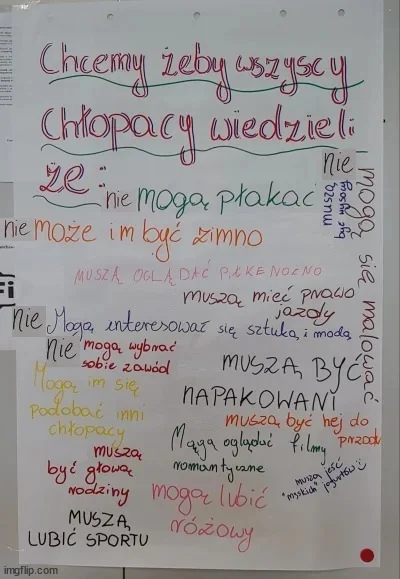 Chcemy żeby wszyscy
Chłopacy wiedzieli
że:
nie mogą płakać
nie
mogą się malować
muszą
być wysocy
nie może im być zimno
MUSZĄ OGLĄDAĆ PIŁKĘ NOŻNO
muszą mieć prawo
jazdy
nie Mogą interesować się sztuką i modą
nie mogą wybrać
sobie zawód
MUSZĄ BYĆ
NAPAKOWANI
Mogą im się
podobać inni
chłopacy
muszą być hej do
przodu
Mągą oglądać filmy
romantyczne
muszą
być głową
rodziny
muszą jeść
"męskich" jogurtów
mogą lubić
różowy
MUSZĄ
LUBIĆ SPORTU
Fi
imgflip.com